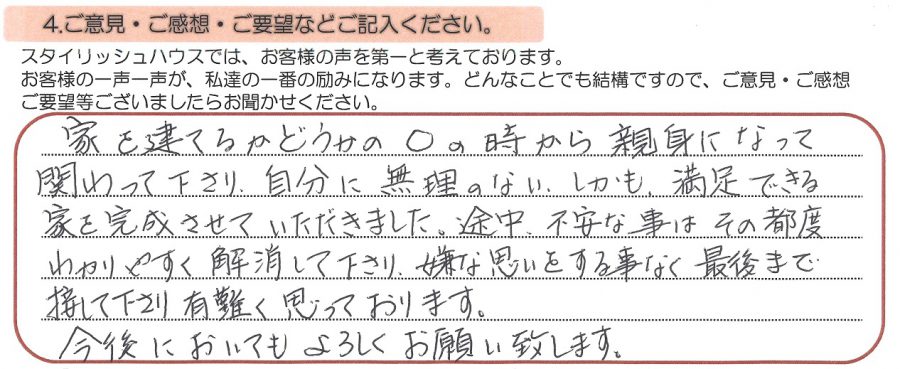 4.ご意見・ご感想・ご要望などご記入ください。
スタイリッシュハウスでは、お客様の声を第一と考えております。
お客様の一声一声が、私達の一番の励みになります。どんなことでも結構ですので、ご意見・ご感想
ご要望等ございましたらお聞かせください。
家を建てるかどうかの〇の時から親身になって
関わって下さり、自分に無理のない、しかも、満足できる
家を完成させていただきました。途中、不安な事はその都度
わかりやすく解消して下さり、嫌な思いをする事なく最後まで
接して下さり有難く思っております。
今後においてもよろしくお願い致します。